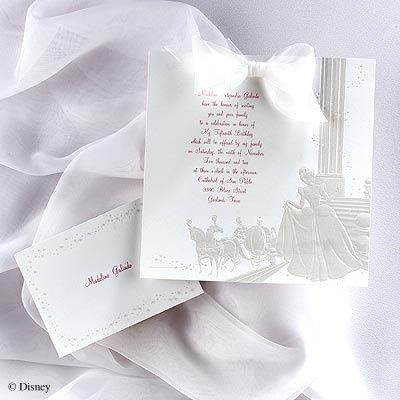 Madeline Alejandra Galindo
have the honour of inviting
you and your family
to a celebration in honor of
My Fifteenth Birthday
which will be offered by my family
on Saturday, the ninth of November
Two thousand and two
at three o'clock in the afternoon
Cathedral of San Pablo
3390 Blaser Street
Garland, Texas
Madeline Galindo
© Disney